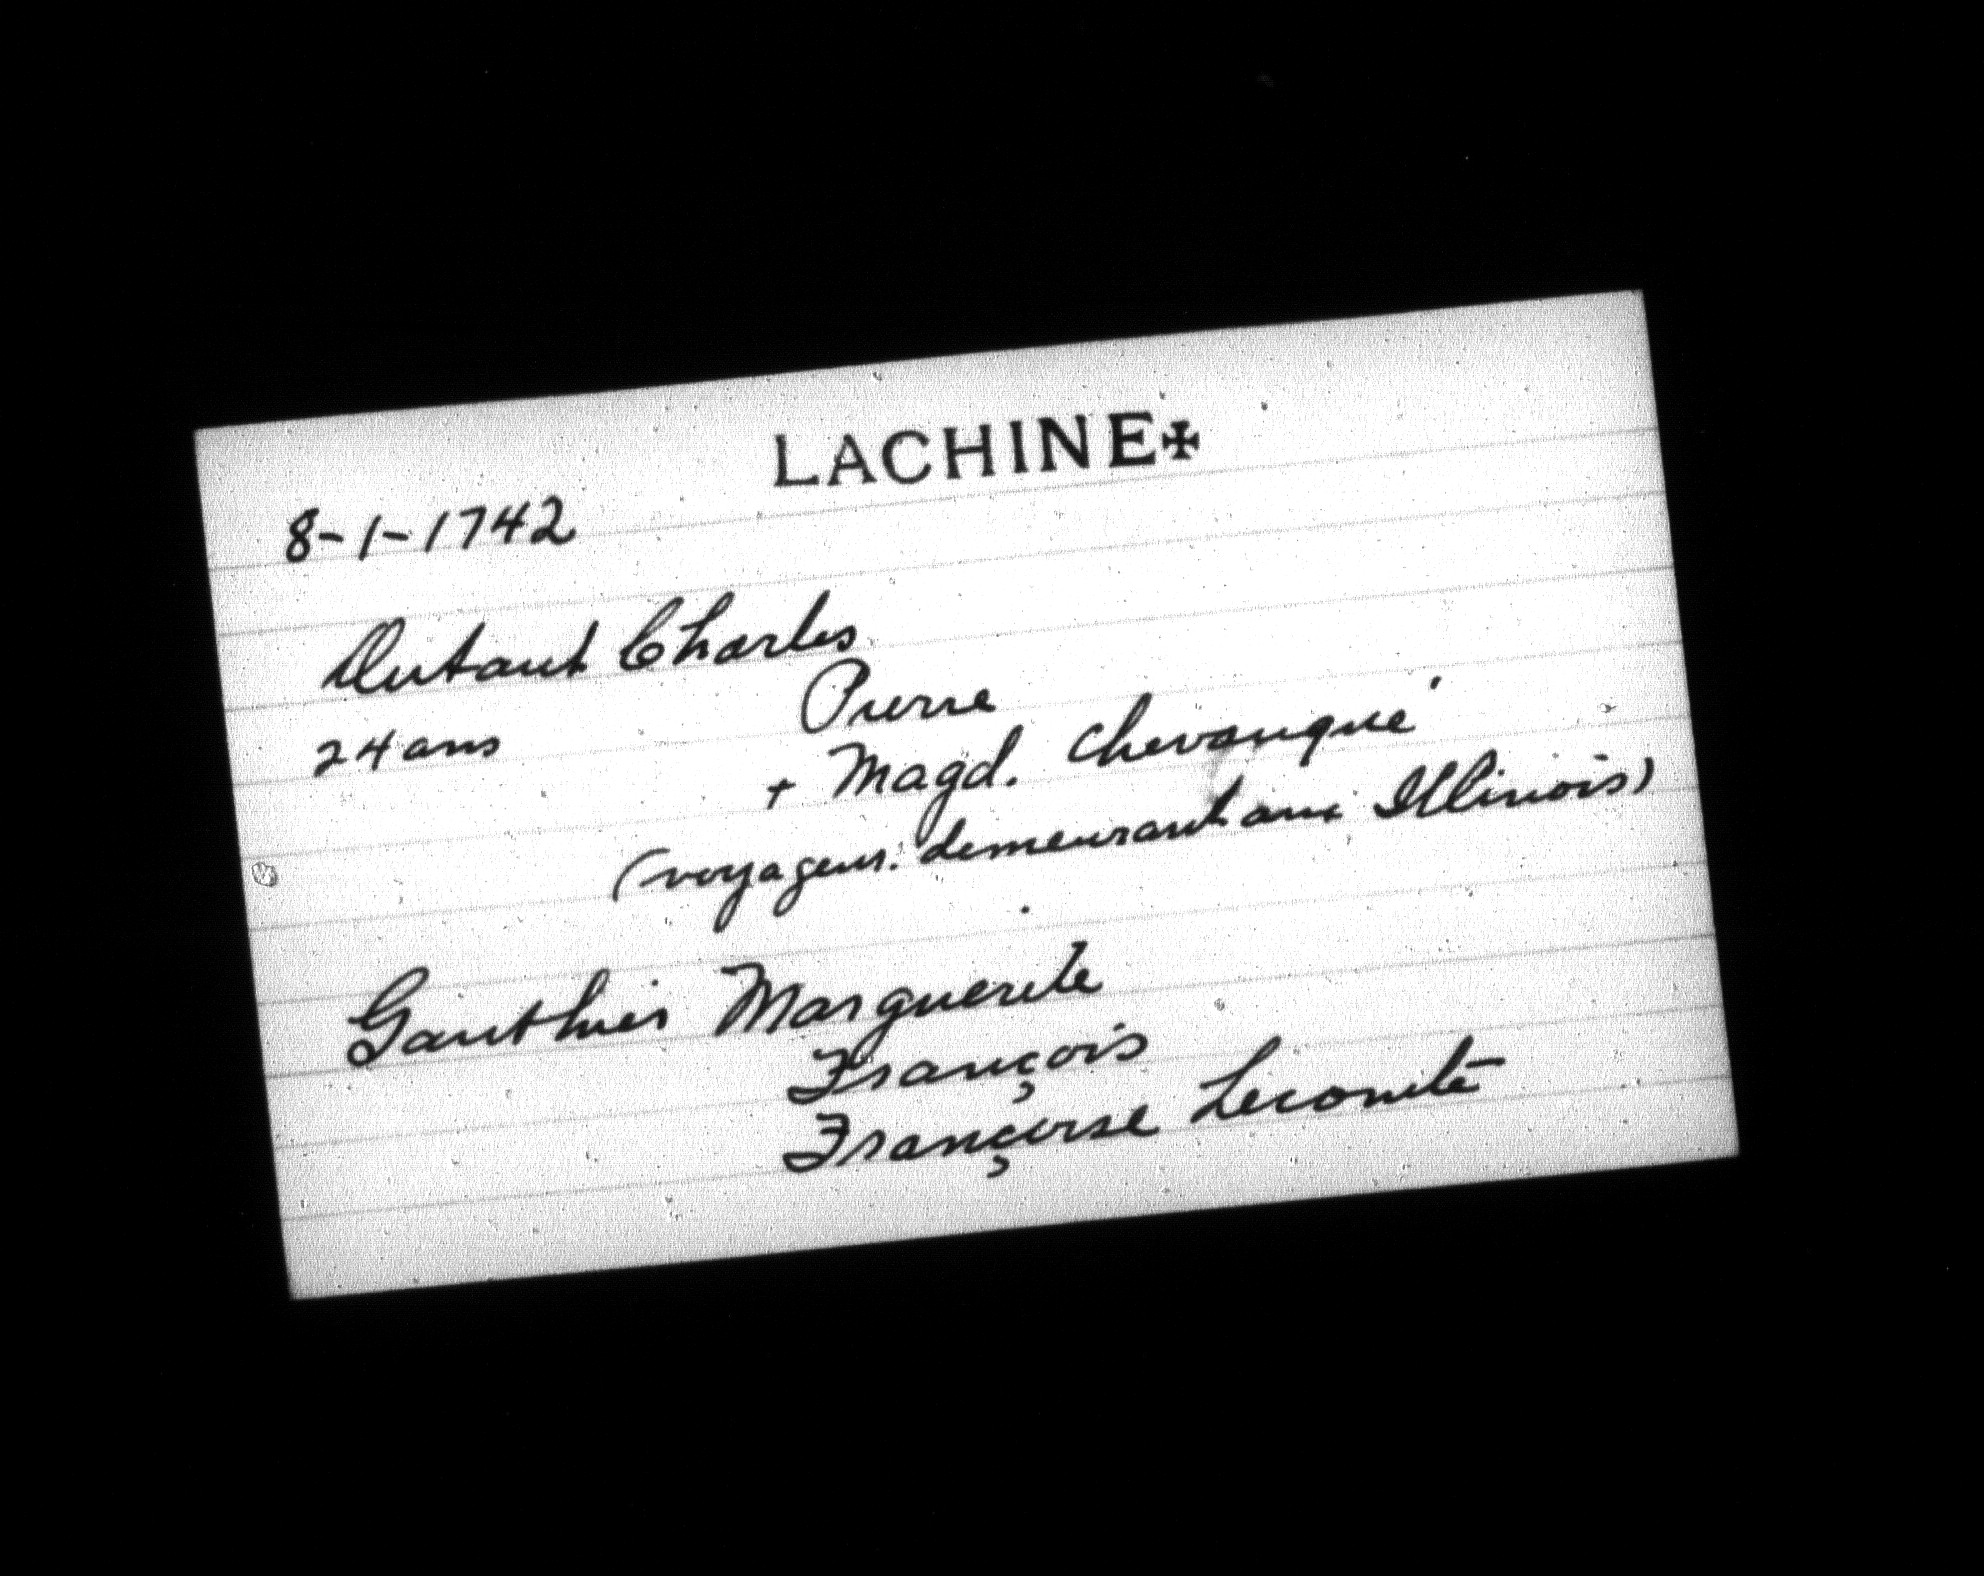 LACHINE✠
8-1-1742
Dutaut Charles
Pierre
24 ans
+ Magd. Chevauqué
(voyageur. demeurant aux Illinois)
Gauthier Marguerite
François
Françoise Lecomte